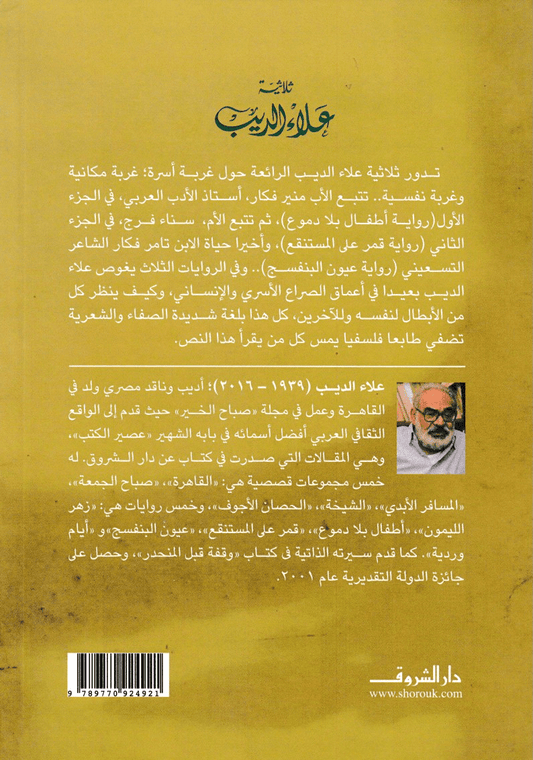 ثلاثية
علاء الديب
تدور ثلاثية علاء الديب الرائعة حول غربة أسرة؛ غربة مكانية
وغربة نفسية.. تتبع الأب منير فكار، أستاذ الأدب العربي، في الجزء
الأول(رواية أطفال بلا دموع)، ثم تتبع الأم، سناء فرج، في الجزء
الثاني (رواية قمر على المستنقع)، وأخيرا حياة الابن تامر فكار الشاعر
التسعيني (رواية عيون البنفسج).. وفي الروايات الثلاث يغوص علاء
الديب بعيدا في أعماق الصراع الأسري والإنساني، وكيف ينظر كل
من الأبطال لنفسه وللآخرين، كل هذا بلغة شديدة الصفاء والشعرية
تضفي طابعا فلسفيا يمس كل من يقرأ هذا النص.
علاء الديب (١٩٣٩ – ٢٠١٦)؛ أديب وناقد مصري ولد في
القاهرة وعمل في مجلة «صباح الخير» حيث قدم إلى الواقع
الثقافي العربي أفضل أسمائه في بابه الشهير «عصير الكتب»،
وهي المقالات التي صدرت في كتاب عن دار الشروق. له
خمس مجموعات قصصية هي: «القاهرة»، «صباح الجمعة»،
«المسافر الأبدي»، «الشيخة»، «الحصان الأجوف»، وخمس روايات هي: «زهر
الليمون»، «أطفال بلا دموع»، «قمر على المستنقع»، «عيون البنفسج»و «أيام
وردية». كما قدم سيرته الذاتية في كتاب «وقفة قبل المنحدر»، وحصل على
جائزة الدولة التقديرية عام ٢٠٠١.
دار الشروق
www.shorouk.com
9 789770 924921